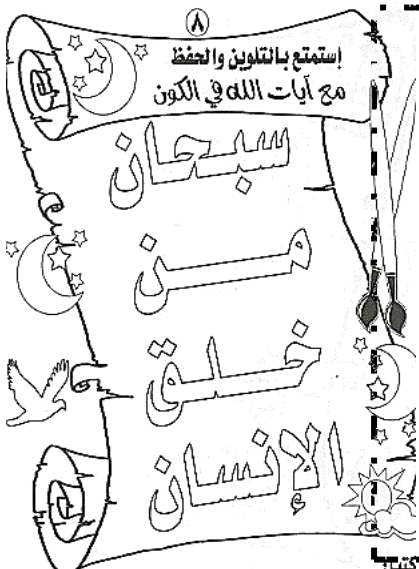 ٨
إستمتع بالتلوين والحفظ
مع آيات الله في الكون
سبحان
من
خلق
الإنسان